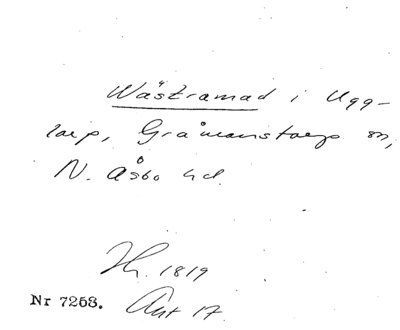 Wästramad i Ugg-
larp, Gråmanstorps sn,
N. Åsbo hd.
Hr. 1819
Nr 7268. Ant 17